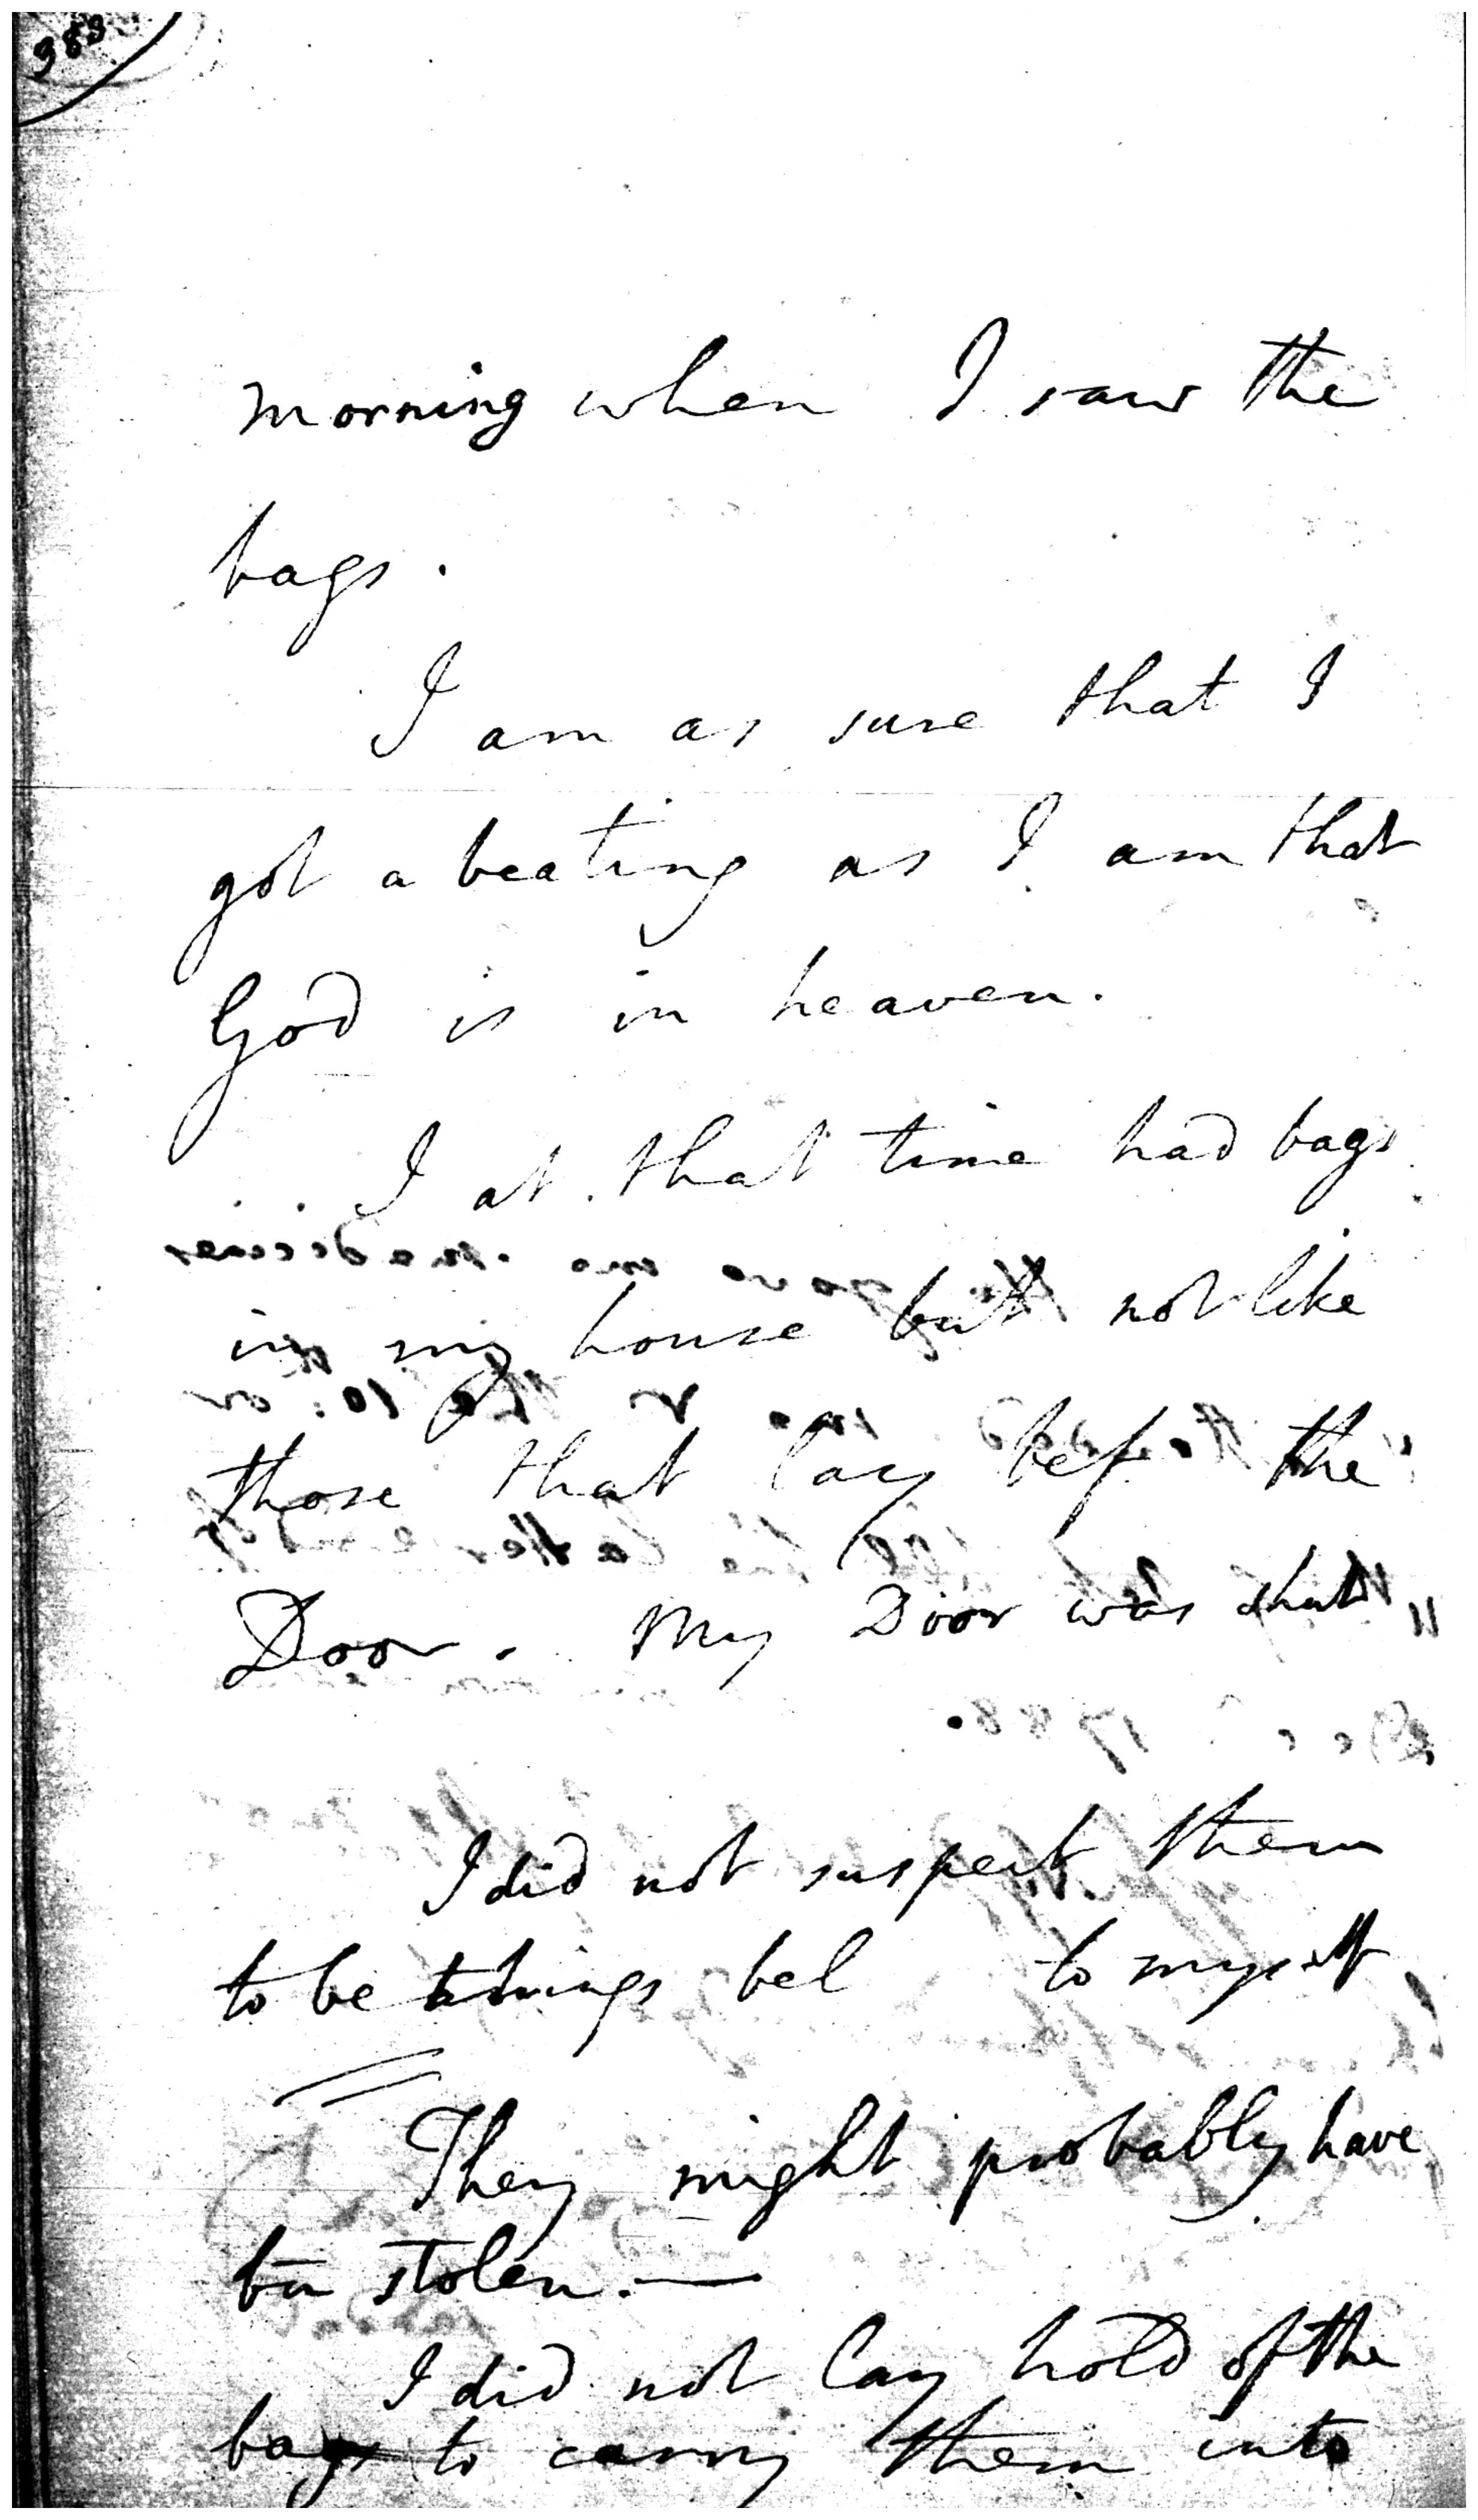 983
morning when I saw the
bags.
I am as sure that I
got a beating as I am that
God is in heaven.
I at that time had bags
in my house but not like
those that lay bef. the
Door. My Door was shut
I did not suspect them
to be things bel to myself
They might probably have
bn stolen. —
I did not lay hold of the
bags to carry them into